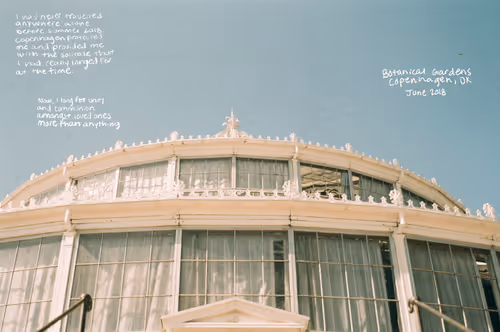 I had never traveled
anywhere alone
before summer 2018.
Copenhagen protected
me and provided me
with the solitude that
I had really longed for
at the time.
Now, I long for unity
and communion
amongst loved ones
more than anything
Botanical Gardens
Copenhagen, DK
June 2018